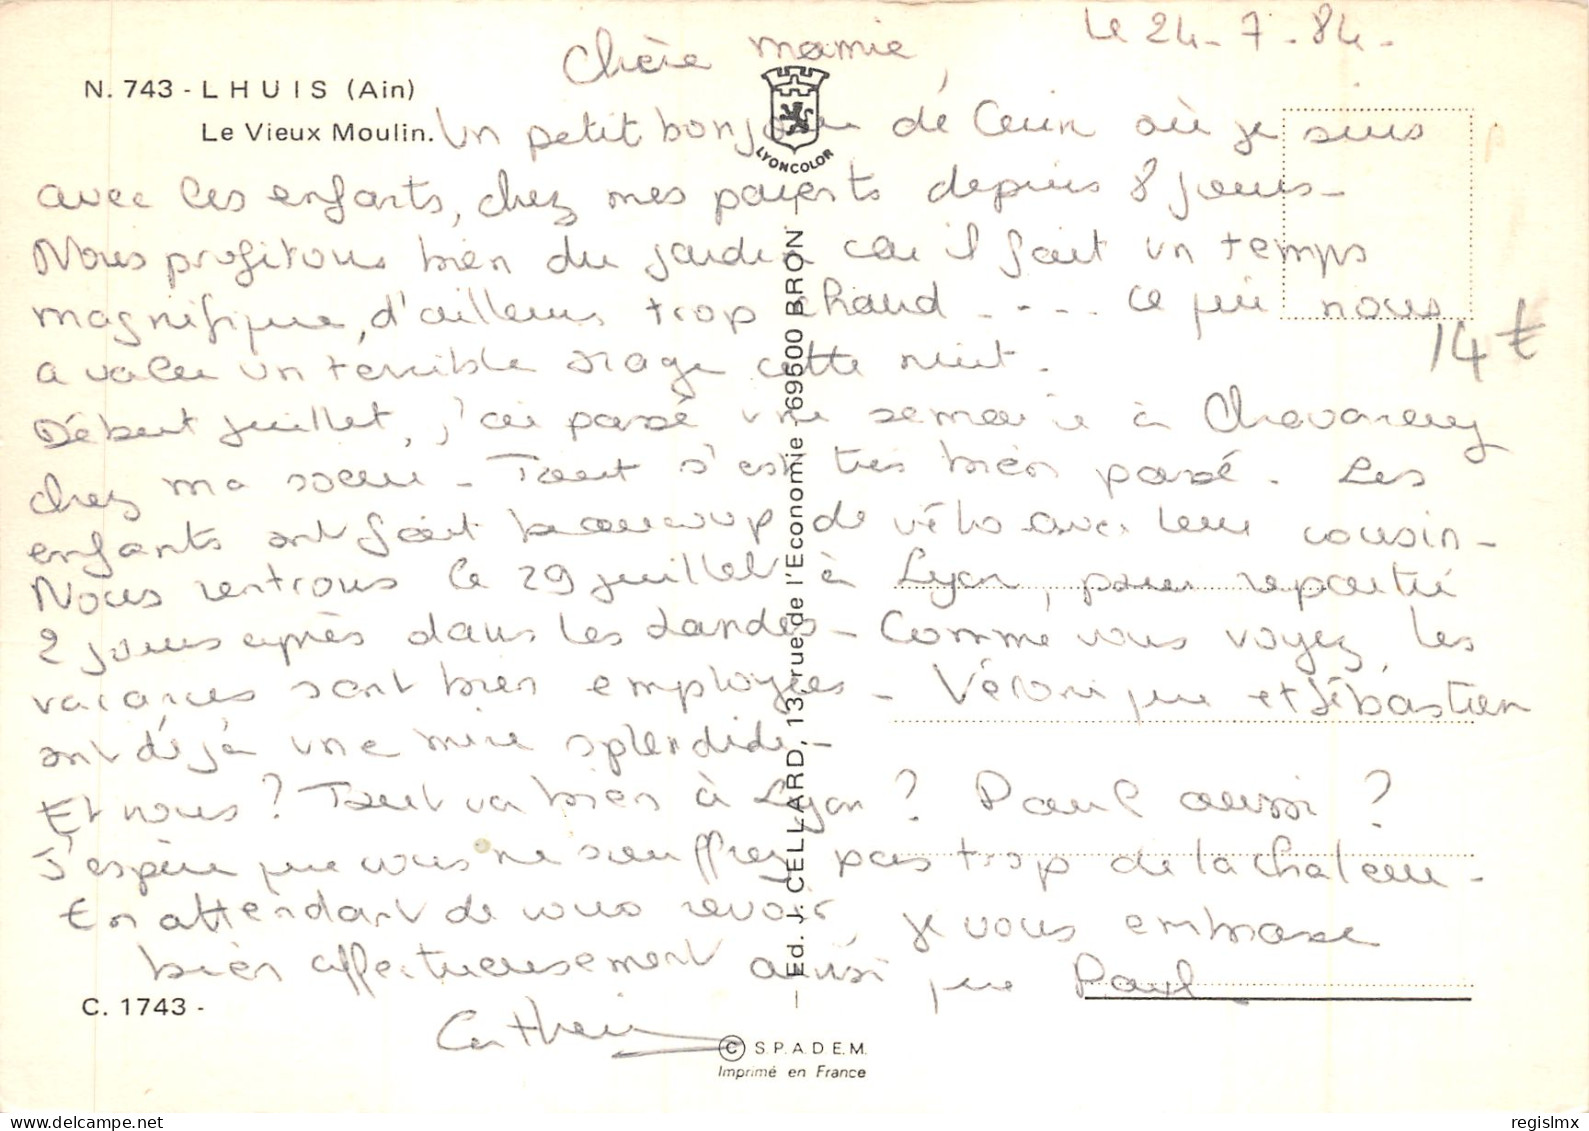 Le 24-7-84-
Chère mamie,
N. 743 - LHUIS (Ain)
Le Vieux Moulin.
LYONCOLOR
Un petit bonjour de où je suis
avec les enfants, chez mes parents depuis 8 jours-
Nous profitons bien du jardin car il fait un temps
magnifique, d'ailleurs trop chaud .... ce qui nous
14€
a valu un terrible orage cette nuit.
Début juillet, j'ai passé une semaine à
chez ma soeur - Tout s'est très bien passé. Les
enfants ont fait beaucoup de vélo avec leur cousin-
Nous rentrons le 29 juillet à Lyon, pour repartir
2 jours après dans les Landes- Comme vous voyez, les
vacances sont bien employées - Véronique et Sébastien
ont déjà une mine splendide-
Et vous? Tout va bien à Lyon? Paul aussi?
J'espère que vous ne souffrez pas trop de la chaleur-
En attendant de vous revoir je vous embrasse
bien affectueusement ainsi que Paul
Catherine
C. 1743 -
— Ed. J. CELLARD, 13, rue de l'Economie - 69500 BRON —
© S.P.A.D.E.M.
Imprimé en France
regislmx